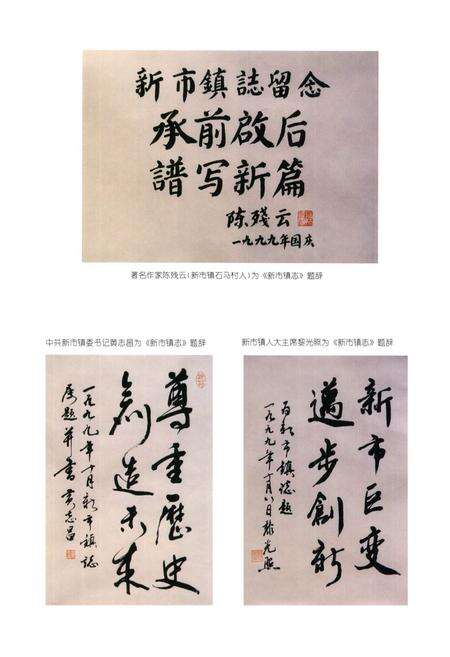 新市鎮誌留念
承前啟后
譜写新篇
陈残云
一九九九年国庆
著名作家陈残云(新市镇石马村人)为《新市镇志》题辞
中共新市镇委书记黄志昌为《新市镇志》题辞
尊重歷史
創造未来
一九九九年十月新市鎮誌
属题并書 黄志昌
新市镇人大主席黎光照为《新市镇志》题辞
新市巨变
邁步創新
为新市鎮誌題
一九九九年十月八日 黎光照